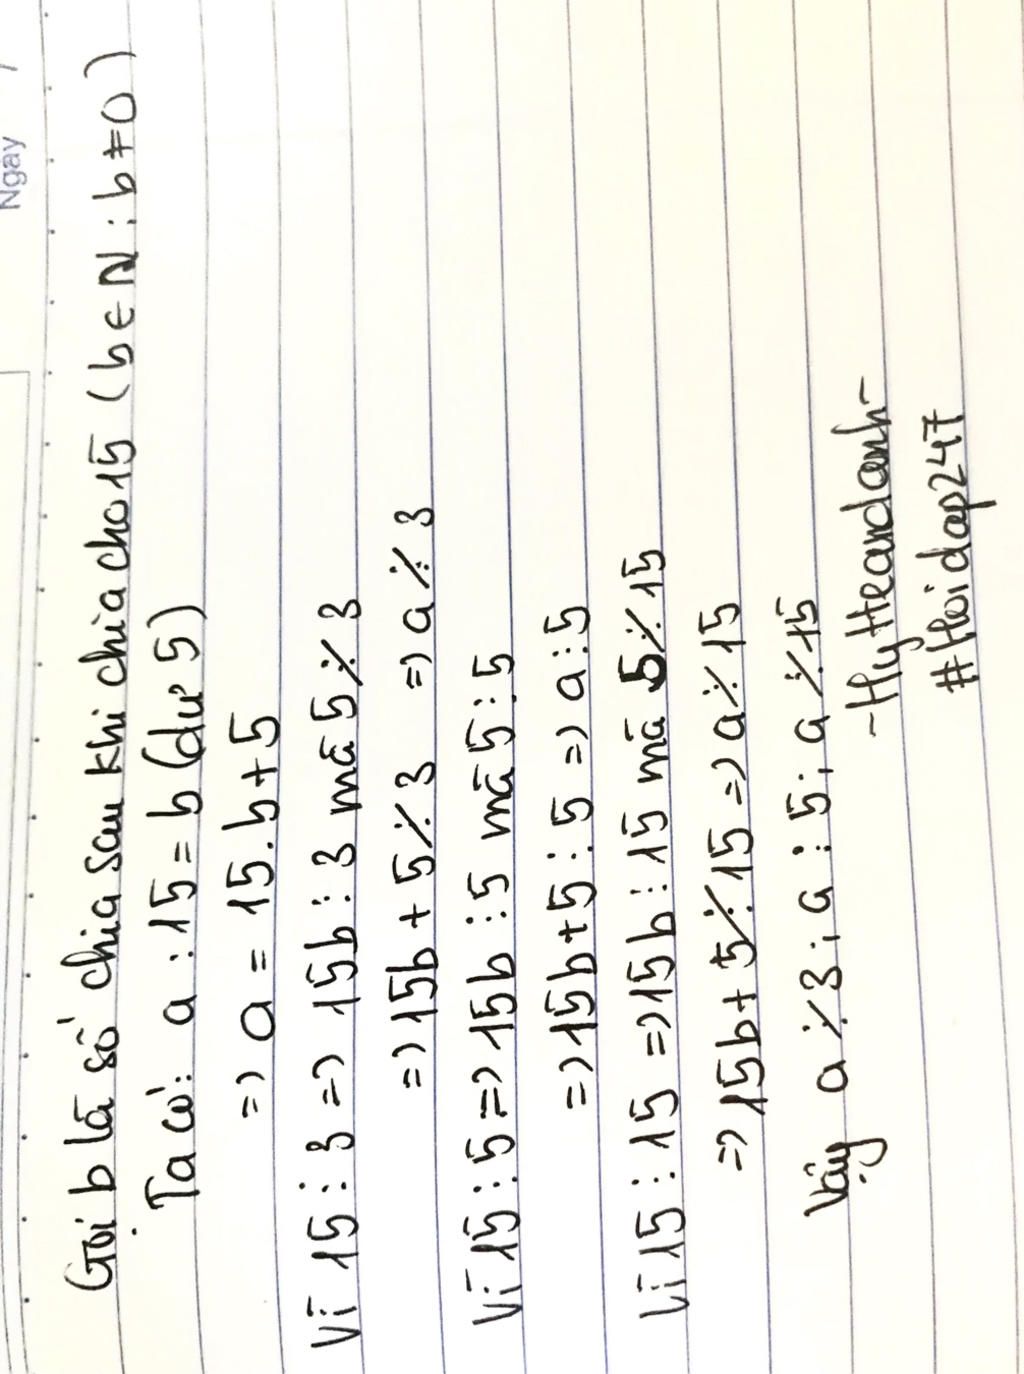 Ngày /
Gọi b là số chia sau khi chia cho 15 (b ∈ N : b ≠ 0)
Ta có: a : 15 = b (dư 5)
=) a = 15.b + 5
Vì 15 ⋮ 3 =) 15b ⋮ 3 mà 5 ⋮̸ 3
=) 15b + 5 ⋮̸ 3 =) a ⋮̸ 3
Vì 15 ⋮ 5 =) 15b ⋮ 5 mà 5 ⋮ 5
=) 15b + 5 ⋮ 5 =) a ⋮ 5
Vì 15 ⋮ 15 =) 15b ⋮ 15 mà 5 ⋮̸ 15
=) 15b + 5 ⋮̸ 15 =) a ⋮̸ 15
Vậy a ⋮̸ 3 ; a ⋮ 5 ; a ⋮̸ 15
-HyHeardanh-
#Hoidap247